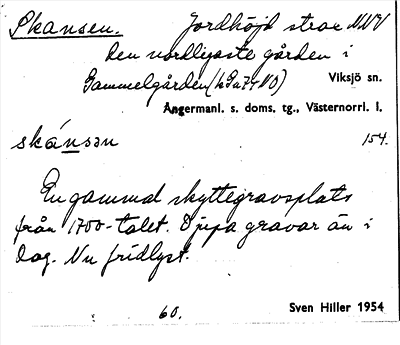 Skansen. Jordhöjd strax NNV
den nordligaste gården i
Gammelgården (h Viksjö sn.
Ångermanl. s. doms. tg., Västernorrl. l.
skánsən 154.
En gammal skyttegravsplats
från 1700-talet. Djupa gravar än i
dag. Nu fridlyst.
60. Sven Hiller 1954